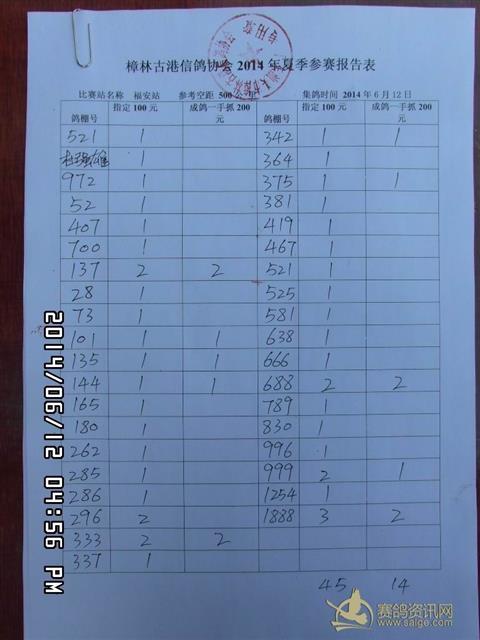 樟林古港信鸽协会 2014 年夏季参赛报告表
比赛站名称 福安站 参考空距 500 公里 集鸽时间 2014 年 6 月 12 日
鸽棚号 指定 100 元 成鸽一手抓 200 元 鸽棚号 指定 100 元 成鸽一手抓 200 元
521 1 342 1 1
1 364 1
972 1 375 1 1
52 1 381 1
407 1 419 1
700 1 467 1
137 2 2 521 1
28 1 525 1
73 1 581 1
101 1 1 638 1
135 1 1 666 1
144 1 1 688 2 2
165 1 789 1
180 1 830 1
262 1 996 1
285 1 999 2 1
286 1 1254 1
296 2 1888 3 2
333 2 2
337 1
45 14
2014/06/12 04:56 PM
赛鸽资讯网
www.saige.com